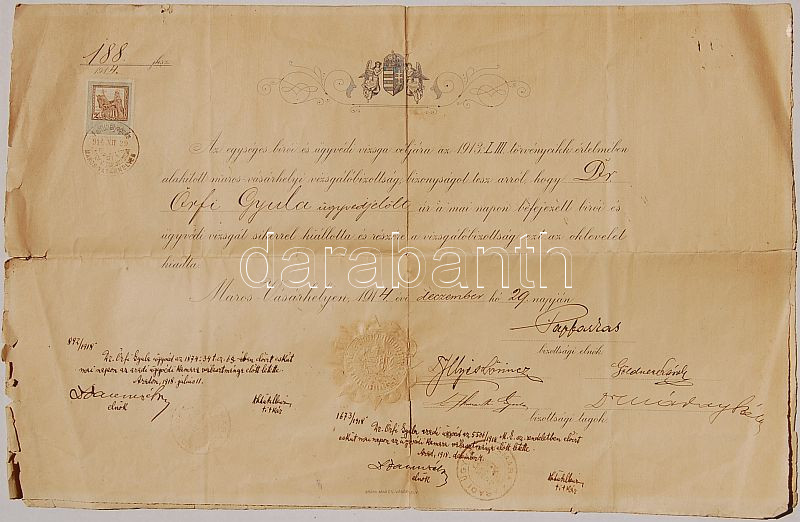 188
1914.
Az egységes birói és ügyvédi vizsga céljára az 1913. LIII. törvénycikk értelmében
alakított maros-vásárhelyi vizsgálóbizottság, bizonyságot tesz arról, hogy Dr.
Örfi Gyula ügyvédjelölt úr a mai napon befejezett birói és
ügyvédi vizsgát sikerrel kiállotta és részére a vizsgálóbizottság ezt az oklevelet
kiadta.
darabanth
Maros-Vásárhelyen, 1914 évi deczember hó 29. napján
bizottsági elnök.
892/1918
Dr. Örfi Gyula ügyvéd az 1874:34 t.cz. előirt esküt
mai napon az aradi ügyvédi kamara választmánya előtt letette.
Aradon, 1918. julius 11.
elnök
titkár
bizottsági tagok.
1673/1918
Dr. Örfi Gyula aradi ügyvéd az 5506/1918 M.E. sz. rendeletben előirt
esküt mai napon az ügyvédi kamara választmánya előtt letette.
Arad, 1918. deczember
elnök
titkár